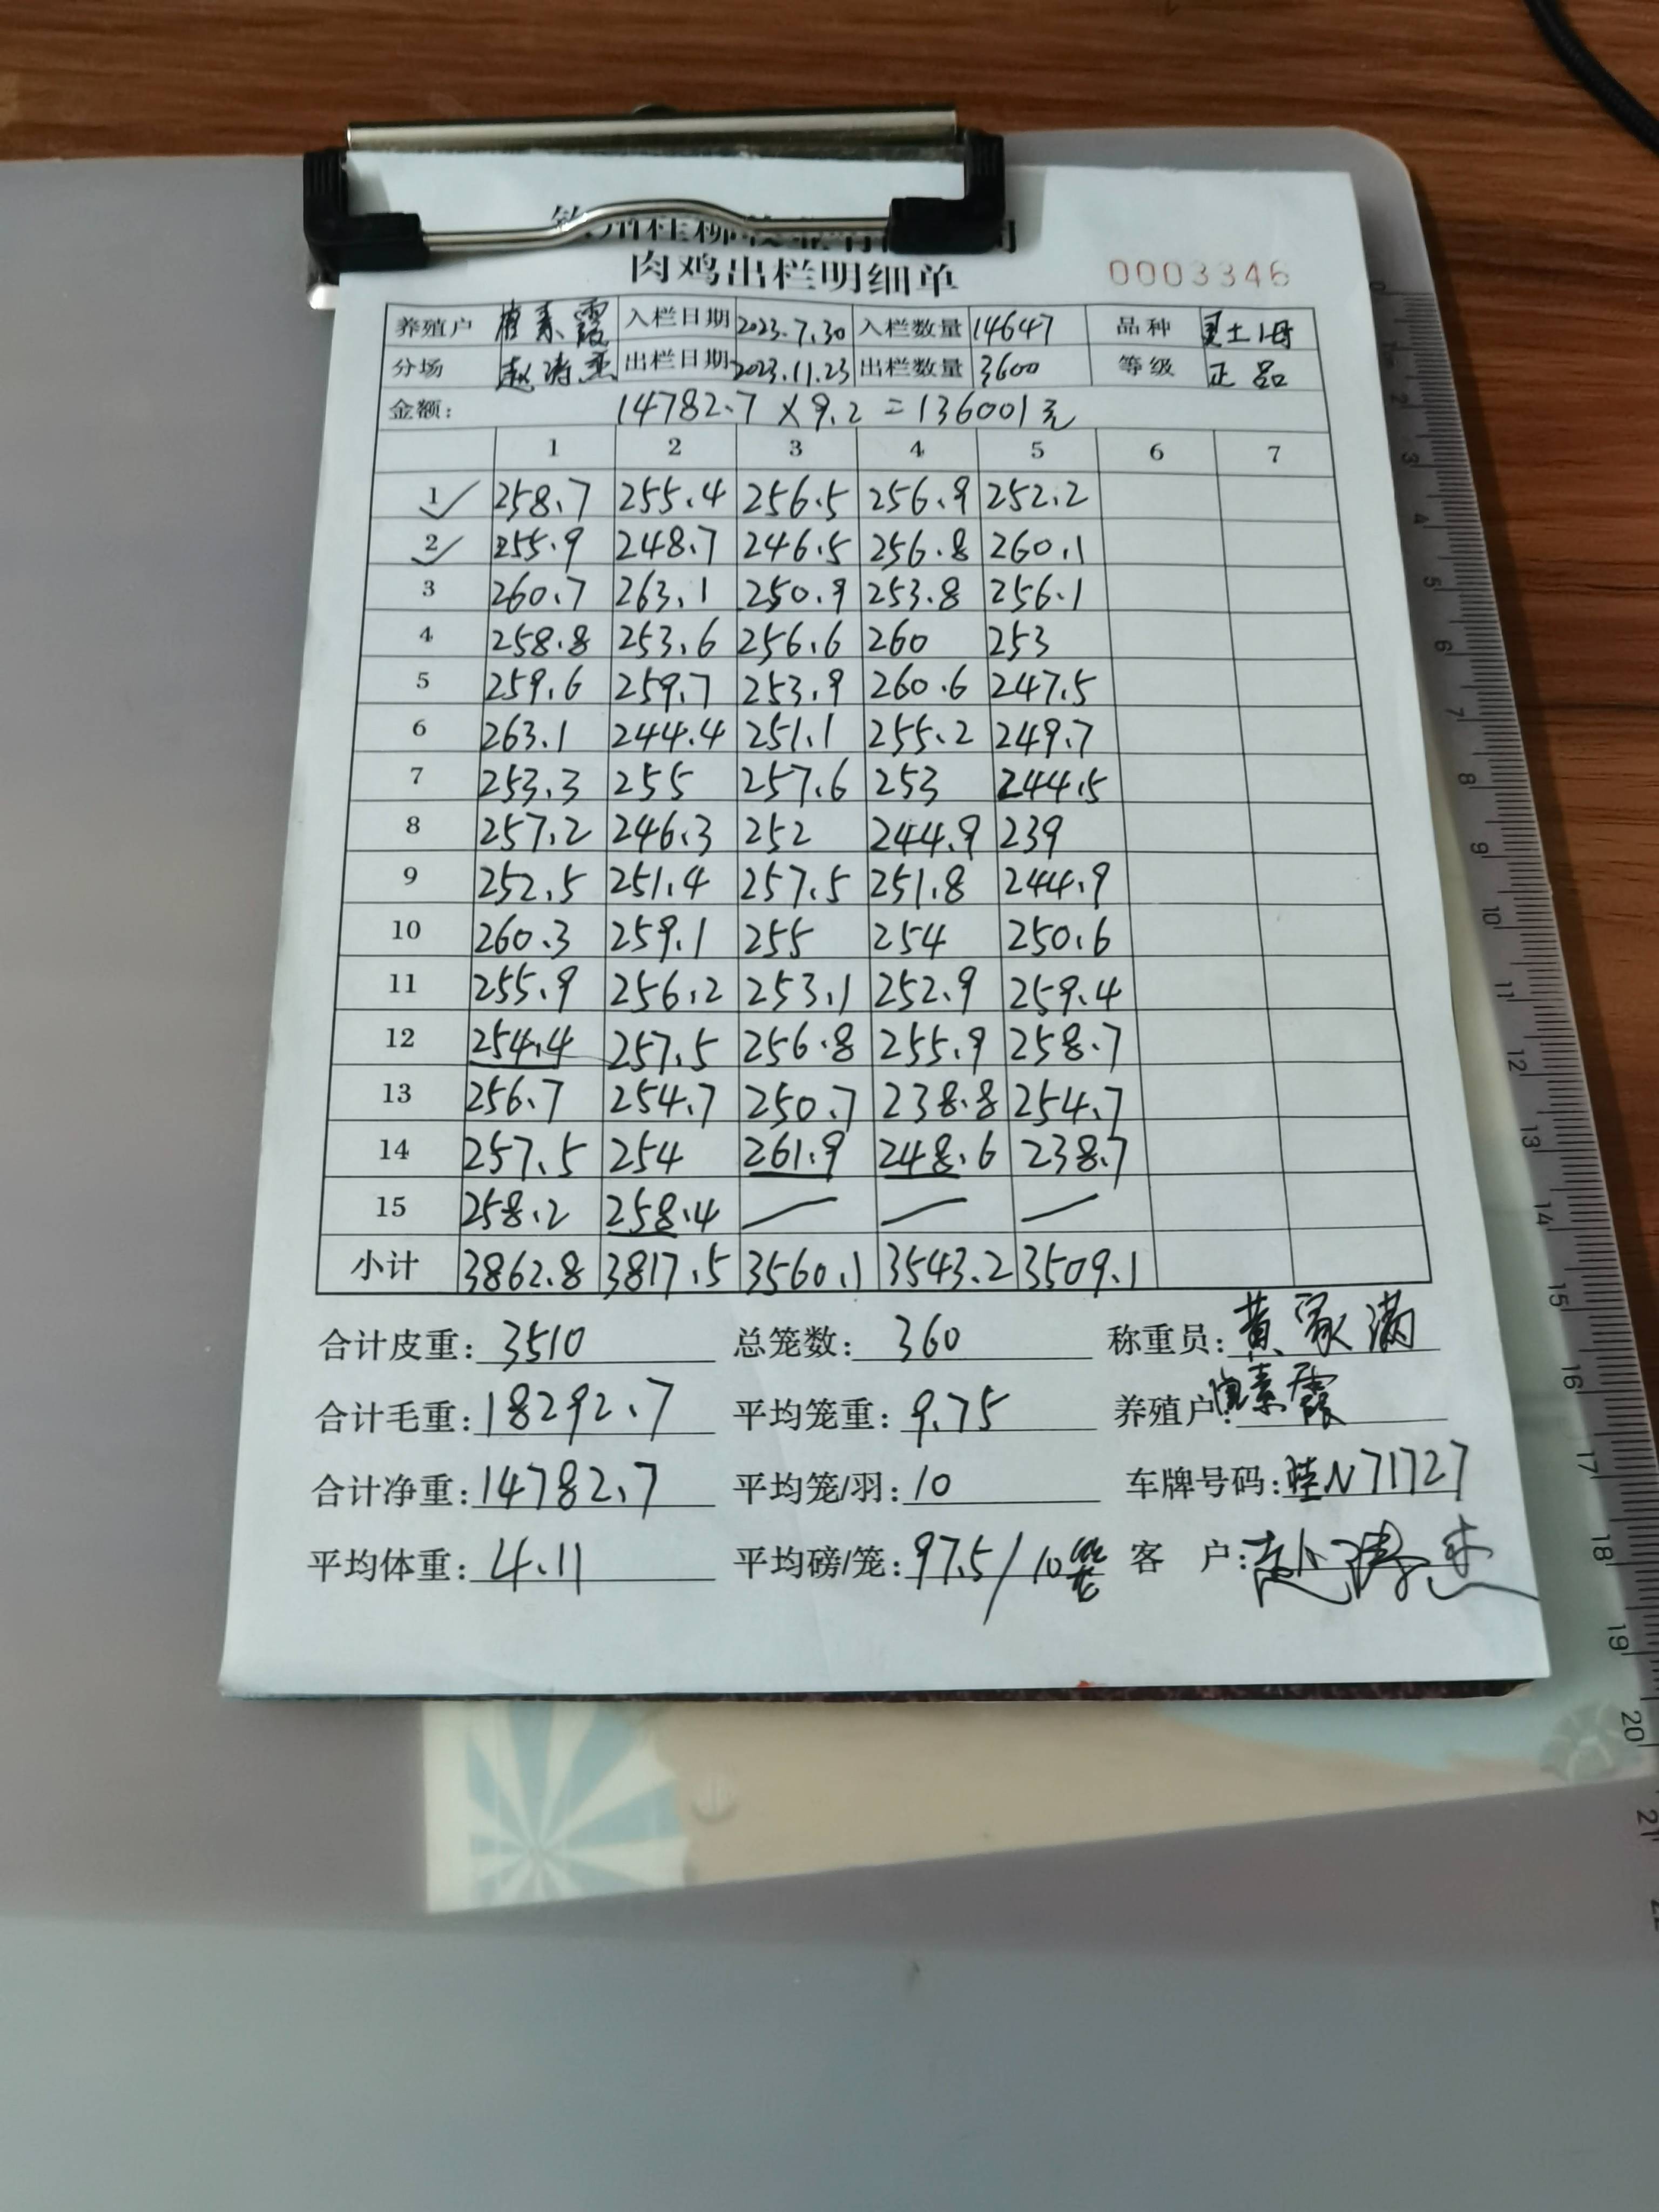 肉鸡出栏明细单 0003346
养殖户 素霞 入栏日期 2023.7.30 入栏数量 14647 品种 土1母
分场 赵涛杰 出栏日期 2023.11.23 出栏数量 3600 等级 正品
金额: 14782.7 × 9.2 = 136001元
1 2 3 4 5 6 7
1 ✓ 258.7 255.4 256.5 256.9 252.2
2 ✓ 255.9 248.7 246.5 256.8 260.1
3 260.7 263.1 250.9 253.8 256.1
4 258.8 253.6 256.6 260 253
5 259.6 259.7 253.9 260.6 247.5
6 263.1 244.4 251.1 255.2 249.7
7 253.3 255 257.6 253 244.5
8 257.2 246.3 252 244.9 239
9 252.5 251.4 257.5 251.8 244.9
10 260.3 259.1 255 254 250.6
11 255.9 256.2 253.1 252.9 259.4
12 254.4 257.5 256.8 255.9 258.7
13 256.7 254.7 250.7 238.8 254.7
14 257.5 254 261.9 248.6 238.7
15 258.2 258.4 — — —
小计 3862.8 3817.5 3560.1 3543.2 3509.1
合计皮重: 3510 总笼数: 360 称重员: 黄家满
合计毛重: 18292.7 平均笼重: 9.75 养殖户: 素霞
合计净重: 14782.7 平均笼/羽: 10 车牌号码: 桂N71727
平均体重: 4.11 平均磅/笼: 97.5/10笼 客 户: 赵涛杰
0 1 2 3 4 5 6 7 8 9 10 11 12 13 14 15 16 17 18 19 20 21